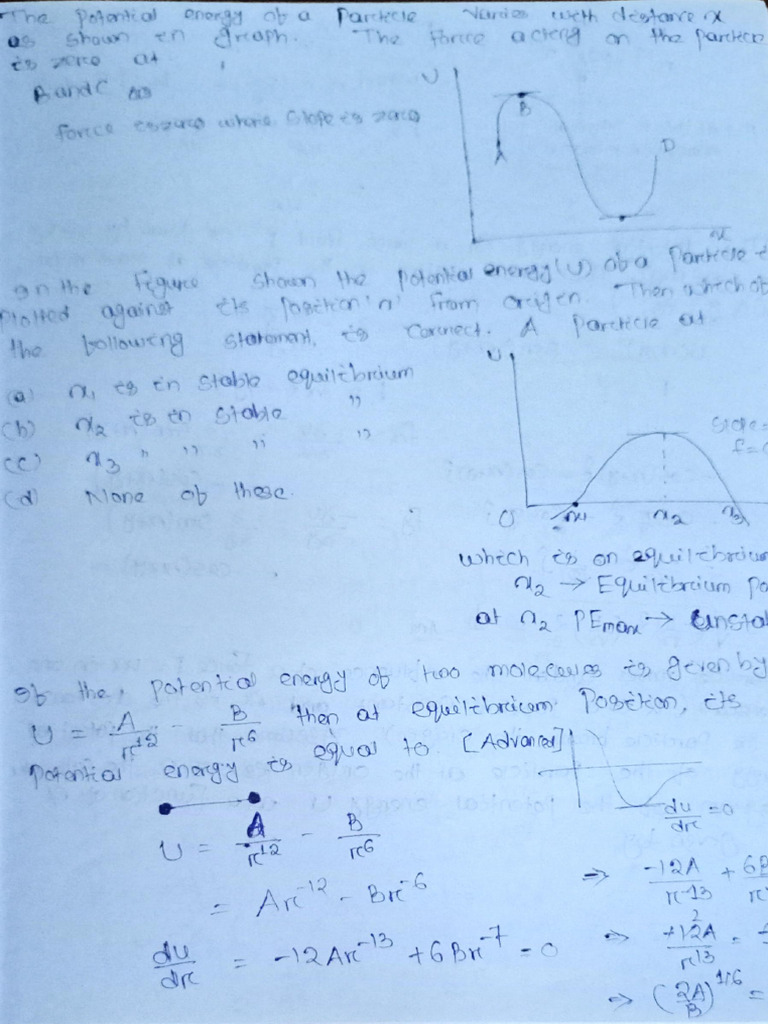 The Potential energy of a Particle varies with distance x
as shown in graph. The force acting on the particle
is zero at
B and C
force is zero where slope is zero
U
B
A
D
x
In the Figure shown the potential energy (U) of a Particle is
Plotted against its position 'x' from origin. Then which of
the following statement, is correct. A Particle at
(a) x₁ is in stable equilibrium
(b) x₂ is in stable "
(c) x₃ " " " "
(d) None of these.
U
O x₁ x₂ x₃
which is on equilibrium
x₂ → Equilibrium Po
at x₂ PEmax → Unsta
If the, potential energy of two molecules is given by
U = A/r¹² - B/r⁶ then at equilibrium Position, its
Potential energy is equal to [Advanced]
du/dr = 0
U = A/r¹² - B/r⁶
= Ar⁻¹² - Br⁻⁶
du/dr = -12Ar⁻¹³ + 6Br⁻⁷ = 0
⇒ -12A/r⁻¹³ + 6B
⇒ +12A/r¹³ =
⇒ (2A/B)^1/6 =